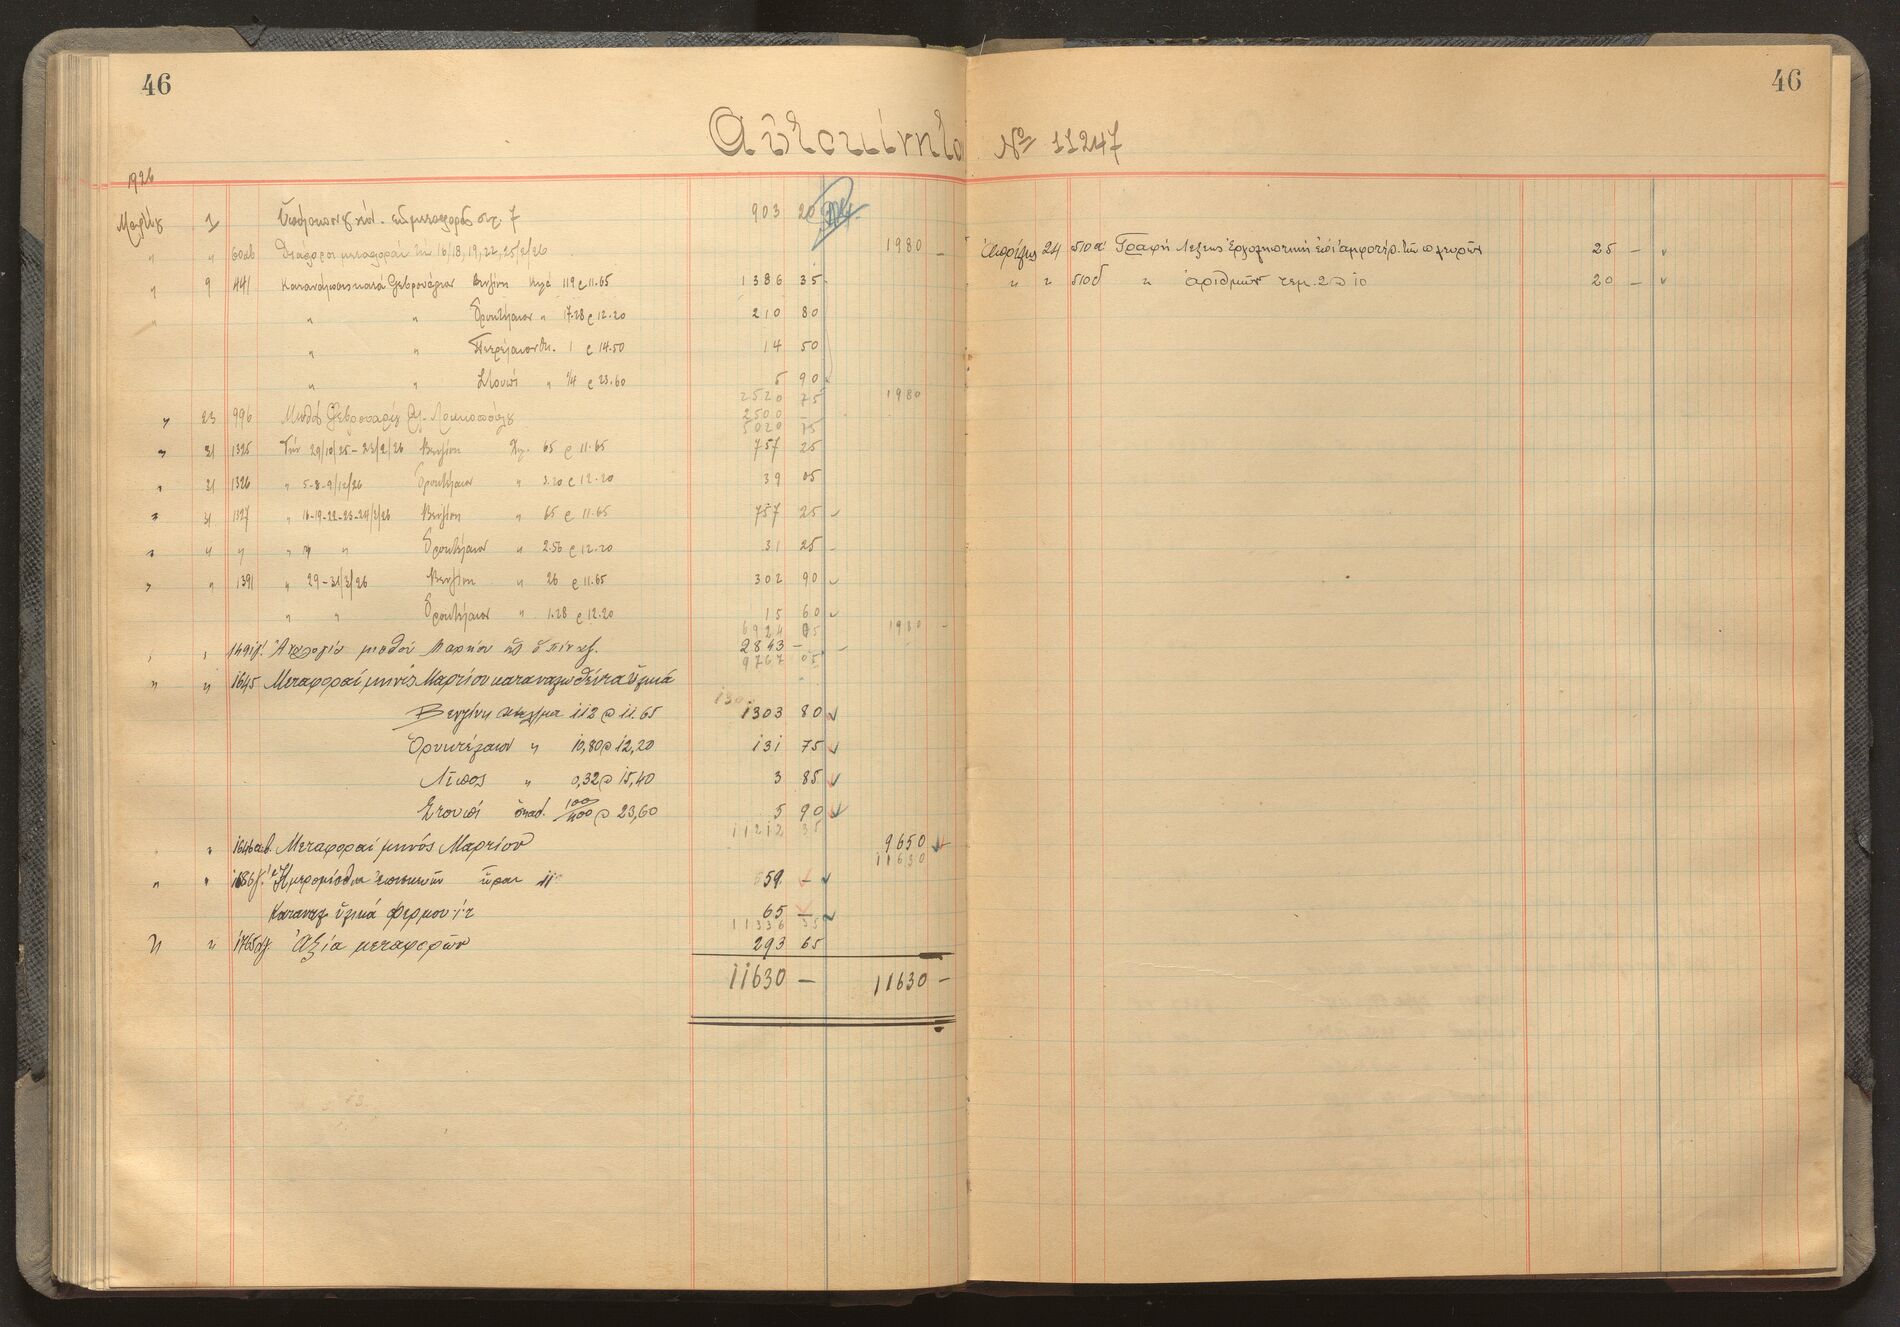 46
46
Αὐτοκίνητο Νο 11247
1926
Μαρτίου 1 Ὑπόλοιπον 7 903 20
" " 60αβ Διάφοροι μεταφοραί τῶν 16/18, 19, 22, 25/2/26 1980 —
" 9 441 Φεβρουάριον Βενζίνη Κιλά 119 @ 11.65 1386 35
" " " Ὀρυκτέλαιον " 17.28 @ 12.20 210 80
" " Πετρέλαιον 1 @ 14.50 14 50
" " Στουπί " 1/4 @ 23.60 5 90
2520 75 1980
" 23 996 Μισθός Φεβρουαρίου 2500 —
5020 75
" 31 1325 Τήν 29/10/25 - 22/2/26 Βενζίνη Χγ. 65 @ 11.65 757 25
" 31 1326 " 5-8-9/12/26 Ὀρυκτέλαιον " 3.20 @ 12.20 39 05
" 31 1327 " 16-19-22-23-24/3/26 Βενζίνη " 65 @ 11.65 757 25
" " " " " " Ὀρυκτέλαιον " 2.56 @ 12.20 31 25
" " 1391 " 29-31/3/26 Βενζίνη " 26 @ 11.65 302 90
" " Ὀρυκτέλαιον " 1.28 @ 12.20 15 60
6924 05 1980 —
" " Ἀναλογία μισθοῦ 2843 —
9767 05
" " 1645 Μεταφοραί μηνός Μαρτίου καταναλωθέντα ὑλικά
Βενζίνη 112 @ 11.65 1303 80
Ὀρυκτέλαιον " 10,80 @ 12,20 131 75
Λίπος " 0,32 @ 15,40 3 85
Στουπί ὀκαδ. 100/400 @ 23,60 5 90
11212 35
" 1646αβ. Μεταφοραί μηνός Μαρτίου 9650
11630
" " Ἡμερομίσθια ἐπισκευῶν ὧραι 11 59 —
Καταναλ. ὑλικά φερμουίτ 65 —
11336 35
" " Ἀξία μεταφορῶν 293 65
11630 — 11630 —
Ἀπρίλιος 24 510α Γραφή Λέξεως Ἐργοληπτική ἐπί ἀμφοτέρ. τῶν πλευρῶν 25 —
" " 510δ " ἀριθμῶν τεμ. 2 @ 10 20 —